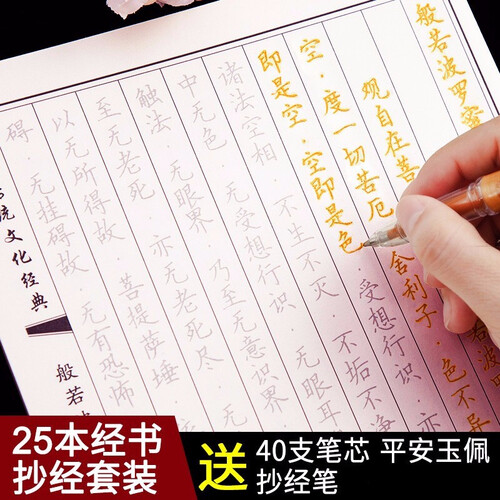 般若波罗蜜
观自在菩 般若波
空·度一切苦厄 舍利子·色不异
即是空·空即是色 受想行识
诸法空相·不生不灭·不垢不净
中无色·无受想行识·无眼耳
触法·无眼界 乃至无意识界
至无老死 亦无老死尽
以无所得故 菩提萨埵
碍·无挂碍故·无有恐怖
统文化经典
般若波
25本经书
抄经套装
送
40支笔芯 平安玉佩
抄经笔